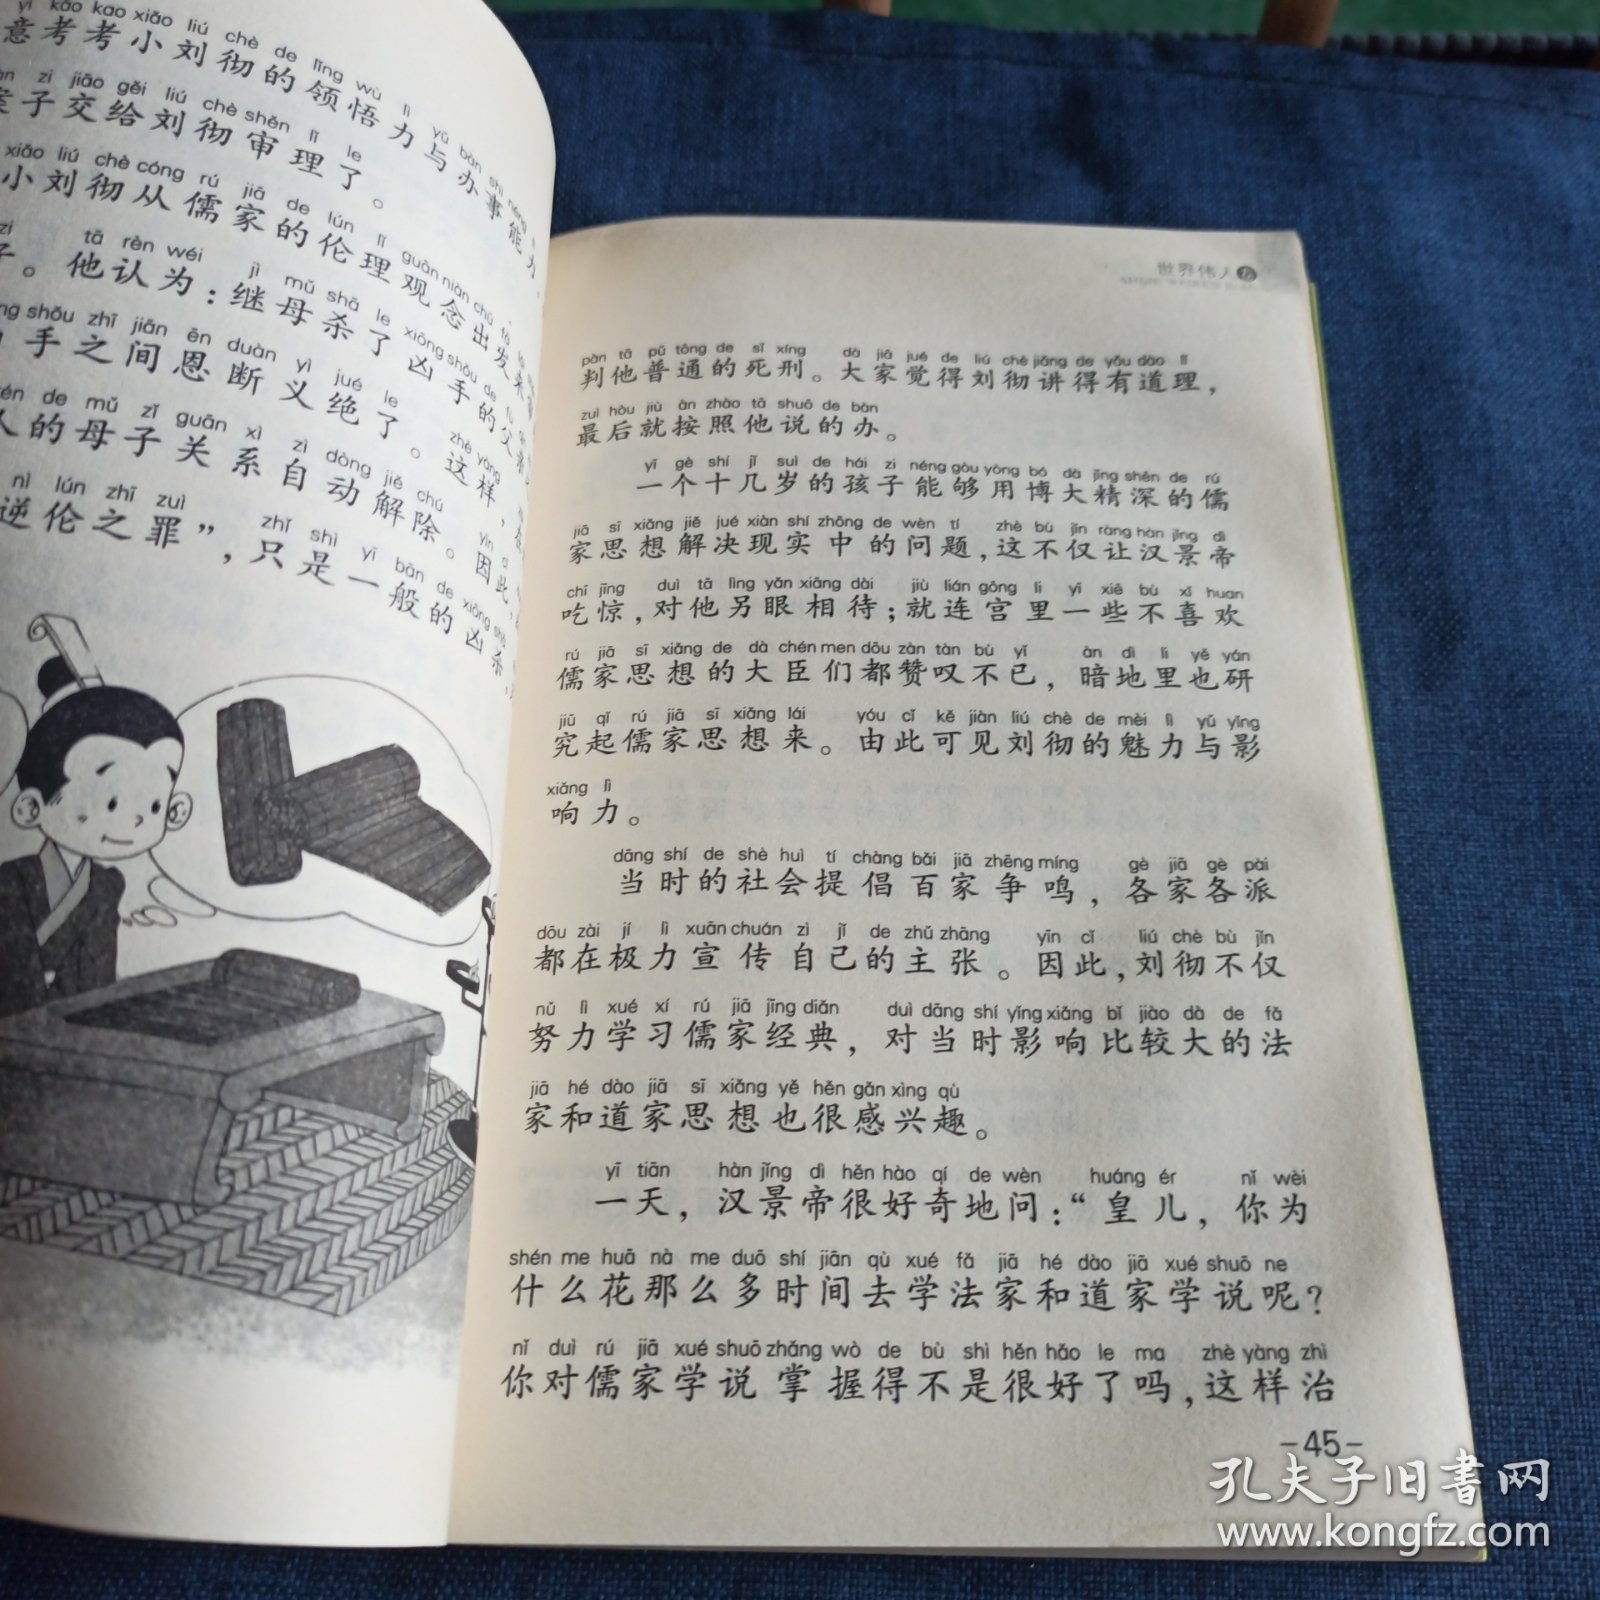 yì kǎo kao xiǎo liú chè de lǐng wù lì yǔ bàn shì néng
意考考小刘彻的领悟力与办事能力
zi jiāo gěi liú chè shěn lǐ le
案子交给刘彻审理了。
xiǎo liú chè cóng rú jiā de lún lǐ guān niàn chū fā
小刘彻从儒家的伦理观念出发来
zi tā rèn wéi jì mǔ shā le xiōng shǒu de fù
子。他认为：继母杀了凶手的父亲
shǒu zhī jiān ēn duàn yì jué le zhè yàng
手之间恩断义绝了。这样，
de mǔ zǐ guān xì zì dòng jiě chú yīn cǐ
人的母子关系自动解除。因此，
nì lún zhī zuì zhǐ shì yī bān de xiōng shā
逆伦之罪”，只是一般的凶杀，
世界伟人
pàn tā pǔ tōng de sǐ xíng dà jiā jué de liú chè jiǎng de yǒu dào lǐ
判他普通的死刑。大家觉得刘彻讲得有道理，
zuì hòu jiù àn zhào tā shuō de bàn
最后就按照他说的办。
yī gè shí jǐ suì de hái zi néng gòu yòng bó dà jīng shēn de rú
一个十几岁的孩子能够用博大精深的儒
jiā sī xiǎng jiě jué xiàn shí zhōng de wèn tí zhè bù jǐn ràng hàn jǐng dì
家思想解决现实中的问题，这不仅让汉景帝
chī jīng duì tā lìng yǎn xiāng dài jiù lián gōng li yī xiē bù xǐ huan
吃惊，对他另眼相待；就连宫里一些不喜欢
rú jiā sī xiǎng de dà chén men dōu zàn tàn bù yǐ àn dì li yě yán
儒家思想的大臣们都赞叹不已，暗地里也研
jiū qǐ rú jiā sī xiǎng lái yóu cǐ kě jiàn liú chè de mèi lì yǔ yǐng
究起儒家思想来。由此可见刘彻的魅力与影
xiǎng lì
响力。
dāng shí de shè huì tí chàng bǎi jiā zhēng míng gè jiā gè pài
当时的社会提倡百家争鸣，各家各派
dōu zài jí lì xuān chuán zì jǐ de zhǔ zhāng yīn cǐ liú chè bù jǐn
都在极力宣传自己的主张。因此，刘彻不仅
nǔ lì xué xí rú jiā jīng diǎn duì dāng shí yǐng xiǎng bǐ jiào dà de fǎ
努力学习儒家经典，对当时影响比较大的法
jiā hé dào jiā sī xiǎng yě hěn gǎn xìng qù
家和道家思想也很感兴趣。
yī tiān hàn jǐng dì hěn hào qí de wèn huáng ér nǐ wèi
一天，汉景帝很好奇地问：“皇儿，你为
shén me huā nà me duō shí jiān qù xué fǎ jiā hé dào jiā xué shuō ne
什么花那么多时间去学法家和道家学说呢？
nǐ duì rú jiā xué shuō zhǎng wò de bù shì hěn hǎo le ma zhè yàng zhì
你对儒家学说掌握得不是很好了吗，这样治
-45-
孔夫子旧书网
www.kongfz.com